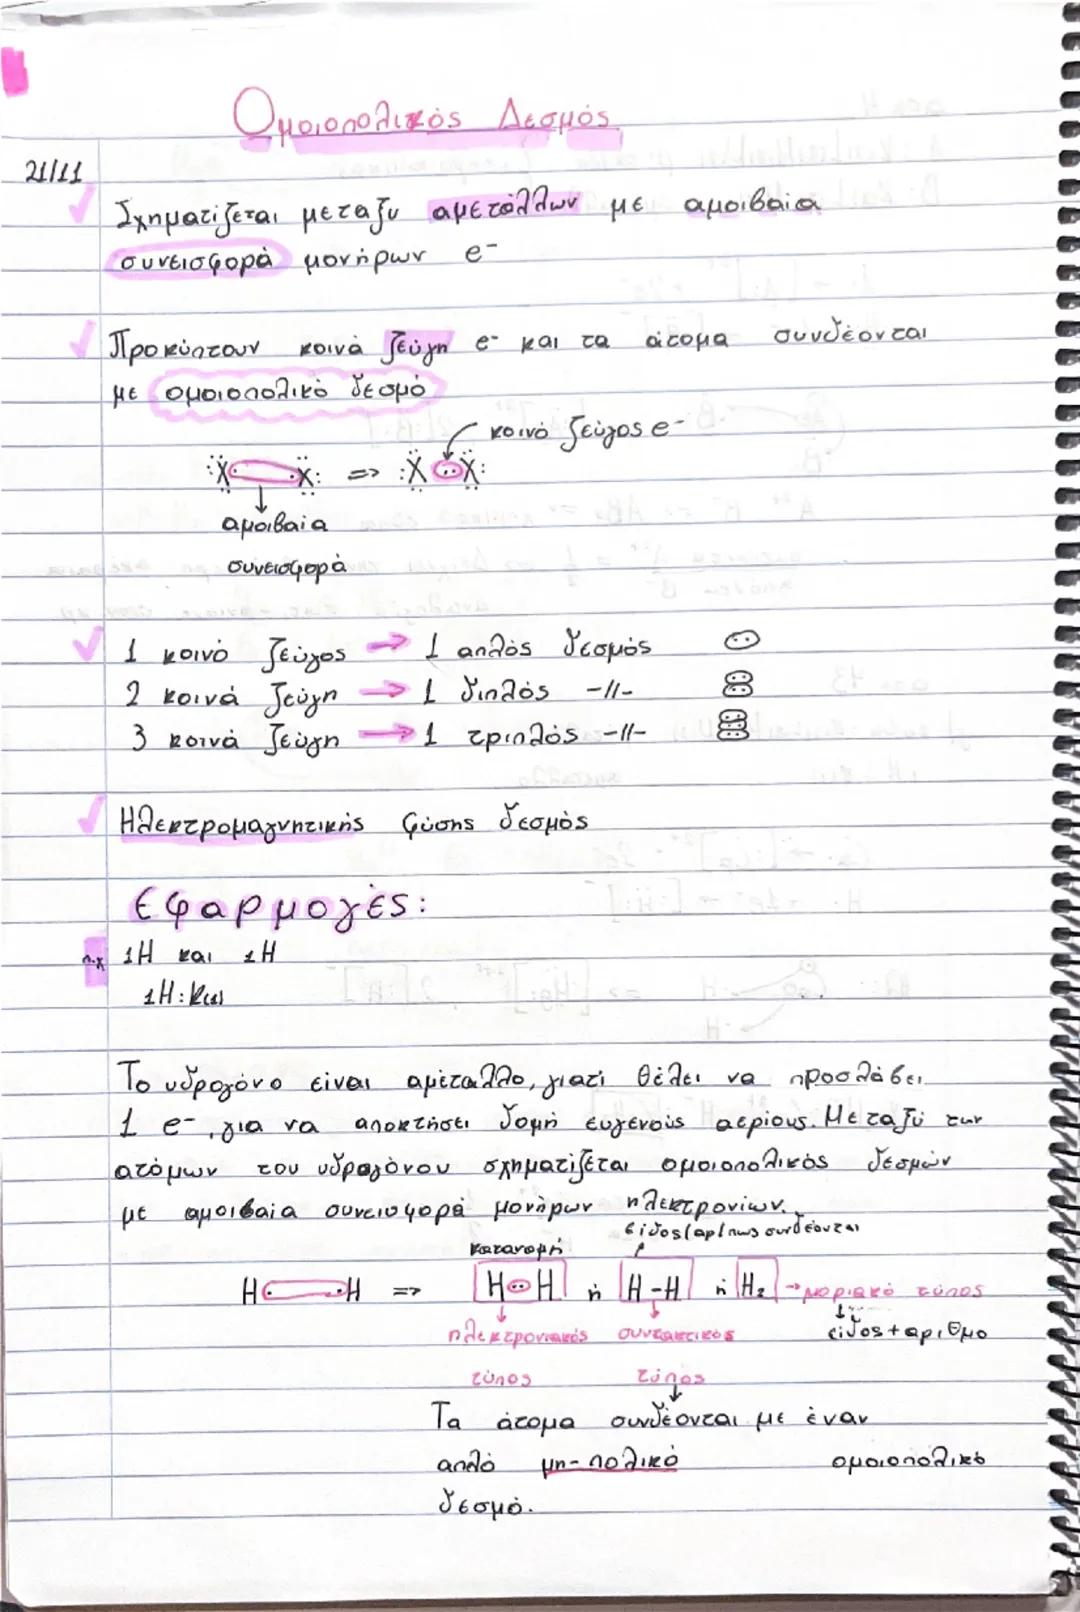 Ομοιοπολικός Δεσμός
21/11
Σχηματίζεται μεταξύ αμετάλλων με αμοιβαία
συνεισφορά μονήρων e-
Προκύπτουν κοινά ζεύγη e- και τα άτομα συνδέονται
με ομοιοπολικό δεσμό
κοινό ζεύγος e-
:X· ·X: => :X··X:
αμοιβαία
συνεισφορά
1 κοινό ζεύγος → 1 απλός δεσμός
2 κοινά ζεύγη → 1 διπλός -//-
3 κοινά ζεύγη → 1 τριπλός -//-
Ηλεκτρομαγνητικής φύσης δεσμός
Εφαρμογές:
π.χ 1H και 1H
1H: K(1)
Το υδρογόνο είναι αμέταλλο, γιατί θέλει να προσλάβει
1 e-, για να αποκτήσει δομή ευγενούς αερίους. Μεταξύ των
ατόμων του υδρογόνου σχηματίζεται ομοιοπολικός δεσμών
με αμοιβαία συνεισφορά μονήρων ηλεκτρονίων.
είδος/αρ/πως συνδέονται
κατανομή
H· ·H => H··H ή H-H ή H2 → μοριακό τύπος
ηλεκτρονιακός συντακτικός είδος+αριθμο
τύπος τύπος
Τα άτομα συνδέονται με έναν
απλό μη-πολικό ομοιοπολικό
δεσμό.